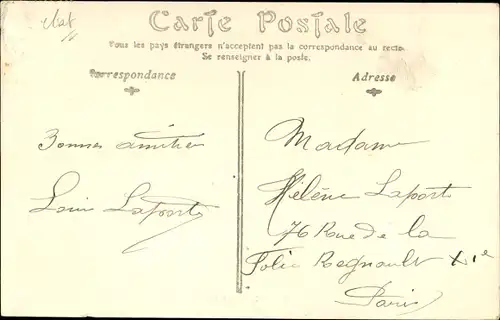 Carte Postale
Tous les pays étrangers n'acceptent pas la correspondance au recto
Se renseigner à la poste.
Correspondance
Adresse
Bonnes amitiés
Louis Laporte
Madame
Hélène Laporte
76 Rue de la
Folie Regnault XIe
Paris